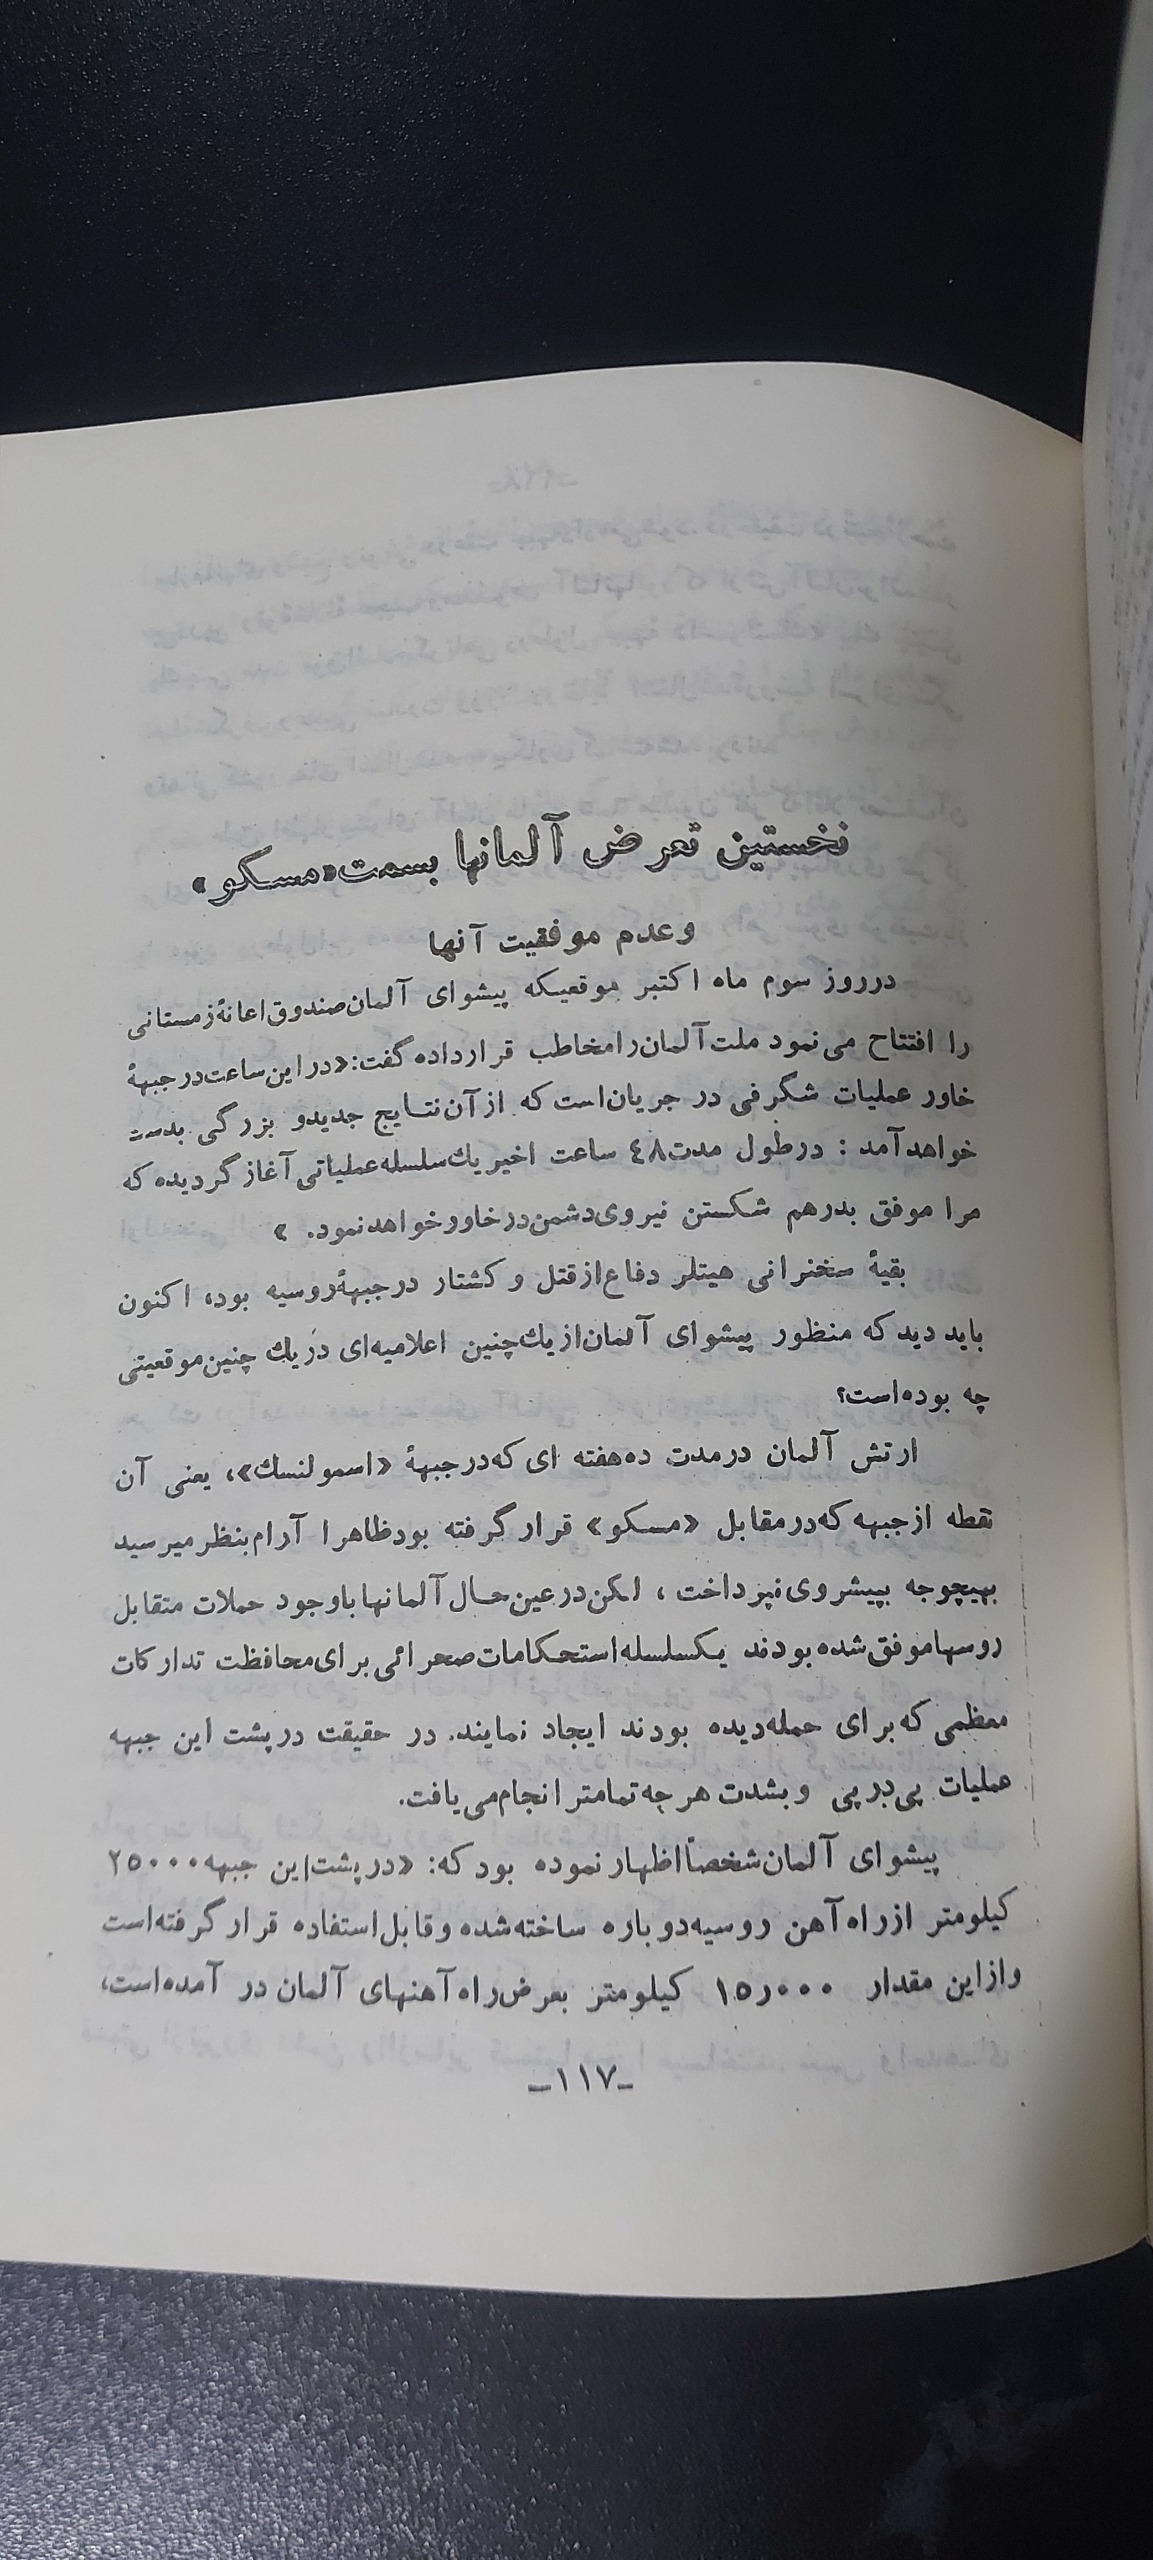 نخستین تعرض آلمانها بسمت «مسکو»
وعدم موفقیت آنها
درروز سوم ماه اکتبر موقعیکه پیشوای آلمان صندوق اعانهٔ زمستانی
را افتتاح می‌نمود ملت آلمان را مخاطب قرارداده گفت: «در این ساعت در جبههٔ
خاور عملیات شگرفی در جریان است که از آن نتایج جدیدو بزرگی بدست
خواهد آمد : درطول مدت ۴۸ ساعت اخیر یك سلسله عملیاتی آغاز گردیده که
مرا موفق بدرهم شکستن نیروی دشمن در خاور خواهد نمود. »
بقیهٔ سخنرانی هیتلر دفاع از قتل و کشتار در جبههٔ روسیه بود، اکنون
باید دید که منظور پیشوای آلمان از یك چنین اعلامیه‌ای در یك چنین موقعیتی
چه بوده است؟
ارتش آلمان درمدت ده هفته ای که در جبههٔ «اسمولنسك»، یعنی آن
نقطه از جبهه که در مقابل «مسکو» قرار گرفته بود ظاهرا آرام بنظر میرسید
بهیچوجه بپیشروی نپرداخت ، لکن در عین حال آلمانها باوجود حملات متقابل
روسها موفق شده بودند یکسلسله استحکامات صحرائی برای محافظت تدارکات
معظمی که برای حمله دیده بودند ایجاد نمایند. در حقیقت در پشت این جبهه
عملیات پی‌در پی و بشدت هر چه تمامتر انجام می یافت.
پیشوای آلمان شخصاً اظهار نموده بود که: «در پشت این جبهه ۲۵۰۰۰
کیلومتر از راه آهن روسیه دوباره ساخته شده و قابل استفاده قرار گرفته است
و از این مقدار ۱۵ر۰۰۰ کیلومتر بعرض راه آهنهای آلمان در آمده است،
-۱۱۷-